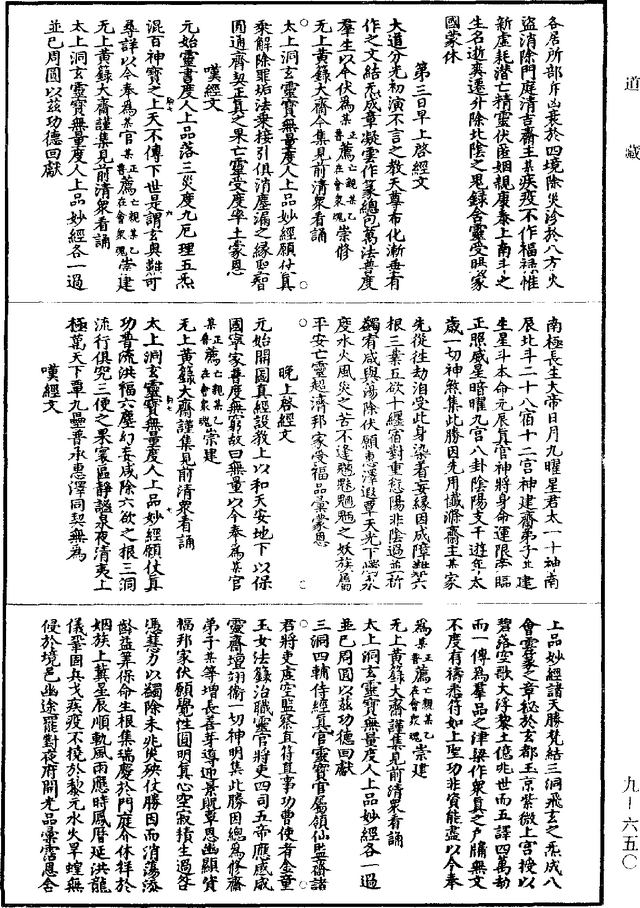 道藏
各居所部斥凶衰於四境除災沴於八方火
盜消除門庭清吉齋主某疾疫不作福祿惟
新虛耗潛亡精靈伏匿姻親康泰上南斗之
生名逝爽遷升除北陰之鬼錄含靈受貺家
國蒙休
第三日早上啓經文
大道分光初演不言之教天尊布化漸垂有
作之文結炁成章凝雲作篆總司萬法普度
羣生以今伏為某官某普薦亡親某乙在會眾魂崇修
无上黃籙大齋今集見前清眾看誦
太上洞玄靈寶無量度人上品妙經願仗真
乘解除罪垢法乘接引俱消塵漏之緣聖智
圓通齊契正真之果亡靈受度率土蒙恩
嘆經文
元始靈書度人上品落三災度九厄理五炁
混百神寶之上天不傳下世是謂玄奧難可
尋詳以今奉為某官某普薦亡親某乙在會眾魂崇建
无上黃籙大齋謹集見前清眾看誦
太上洞玄靈寶無量度人上品妙經各一過
並已周圓以茲功德回獻
南極長生大帝日月九曜星君太一十神南
辰北斗二十八宿十二宮神建齋弟子某建
生星斗本命元辰真官神將身命運限李臨
正照威星暗曜九宮八卦陰陽支干遊年太
歲一切神煞集此勝因先用懺滌齋主某家
先從往劫洎受此身染著妄緣因成障難六
根三業五欲十纏宿對重愆陽非陰過並祈
蠲宥咸與蕩除伏願惠澤遐覃天光下
度水火風災之苦不逢魑魅魍魎之妖族屬
平安亡靈超濟邦家受福品彙蒙恩
晚上啓經文
元始開圖真經設教上以和天安地下以保
國寧家普度無窮故曰無量以今奉為某官
某正普薦亡親某乙在會眾魂崇建
无上黃籙大齋謹集見前清眾看誦
太上洞玄靈寶無量度人上品妙經願仗真
功普流洪福六塵幻妄咸除六欲之根三洞
流行俱究三便之果寰區靜謐泉夜清夷上
極萬天下覃九壘普承惠澤同契無為
嘆經文
上品妙經諸天勝梵結三洞飛玄之炁成八
會雲篆之章秘於玄都玉京紫微上宮授以
碧落空歌大浮黎土億兆世而五譯四萬劫
而一傳為羣品之津梁作眾真之戶牖無文
不度有禱悉符如上聖功非資能盡以今奉
為某正普薦亡親某乙在會眾魂崇建
无上黃籙大齋謹集見前清眾看誦
太上洞玄靈寶無量度人上品妙經各一過
並已周圓以茲功德回獻
三洞四輔侍經真官靈寶官屬領仙監齋諸
君將吏虛空監察直符直事功曹使者金童
玉女法籙治職靈官將吏四司五帝應感威
靈齋壇翊衛一切神明集此勝因總為修齋
弟子某等增長善芽導迎景貺覃恩幽顯貸
福邦家伏願覺性圓明真心空寂積生過咎
憑慧力以蠲除未兆災殃仗勝因而消蕩添
齡益算保命生根集瑞慶於門庭介休祥於
姻族上冀星辰順軌風雨應時鳳曆延洪龍
儀鞏固兵戈疾疫不撓於黎元水火旱蝗無
侵於境邑幽途罷對夜府開光品彙霑恩含
九-六五〇